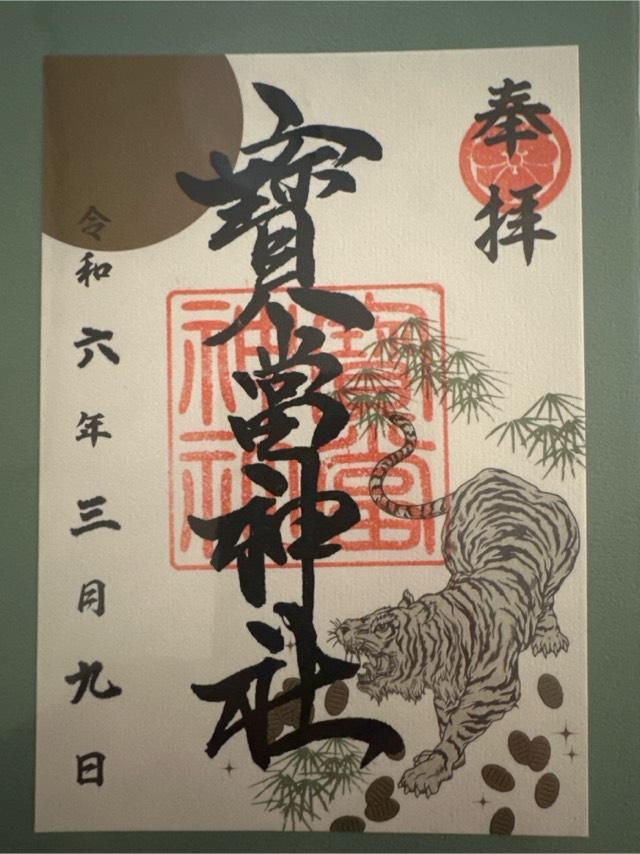 奉拝
寶當神社
寶當
神社
令和六年三月九日